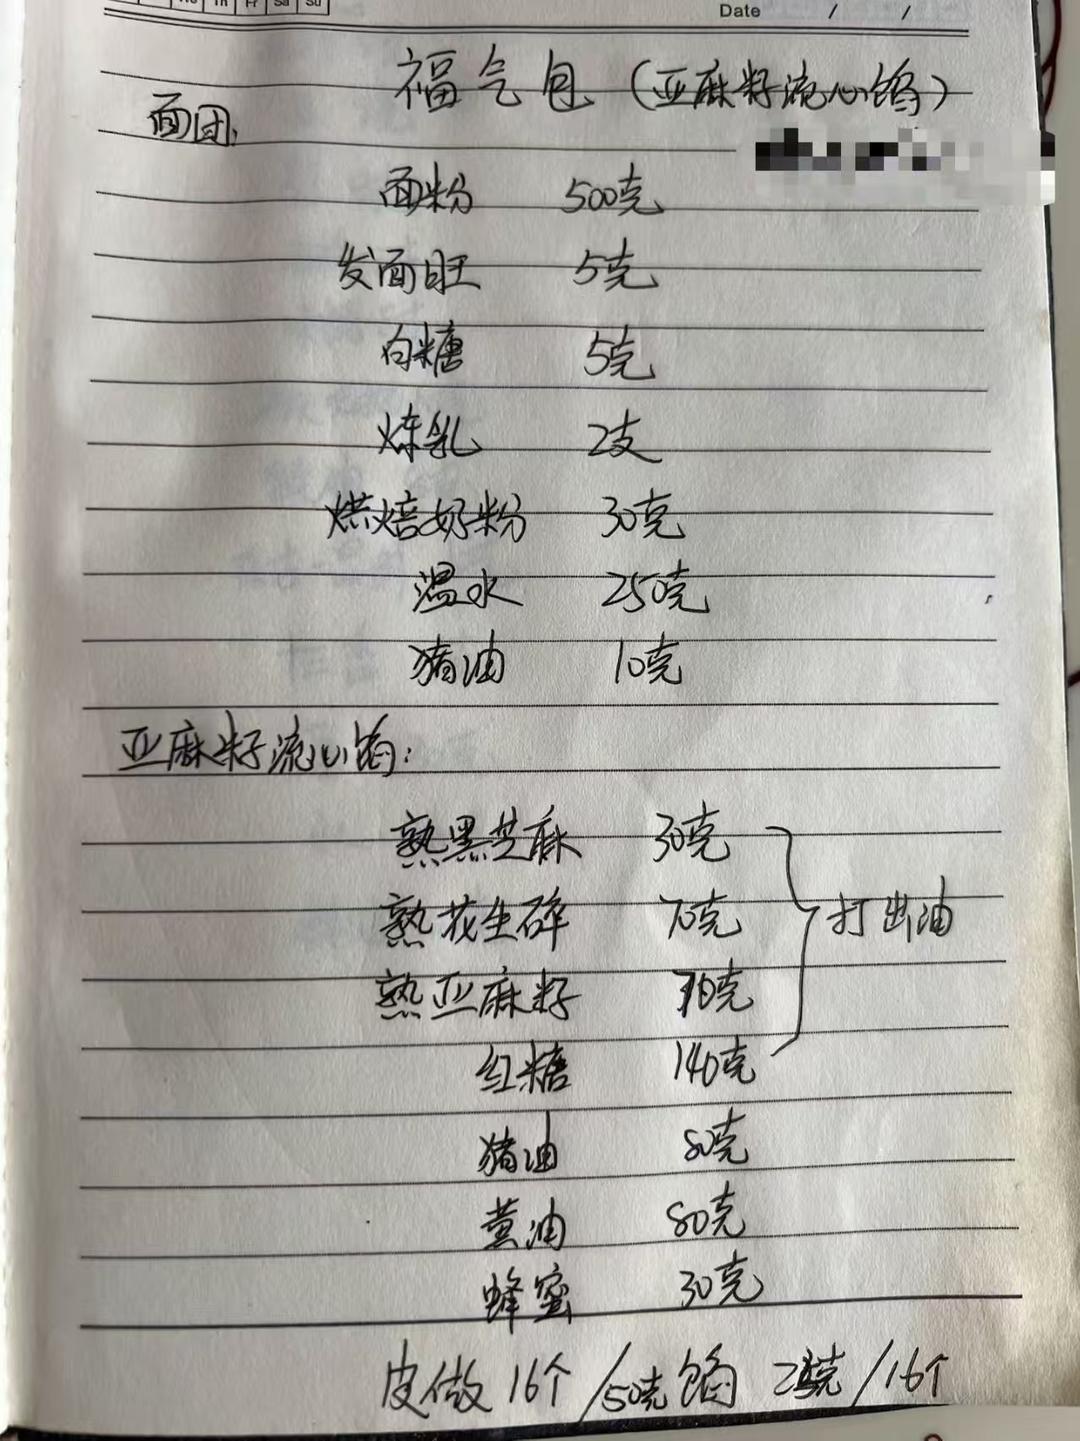 We Th Fr Sa Su
Date / /
福气包（亚麻籽流心馅）
面团：
面粉 500克
发面旺 5克
白糖 5克
炼乳 2支
烘焙奶粉 30克
温水 250克
猪油 10克
亚麻籽流心馅：
熟黑芝麻 30克
熟花生碎 70克
打出油
熟亚麻籽 克
红糖 140克
猪油 80克
黄油 80克
蜂蜜 30克
皮做16个/50克馅 25克/16个